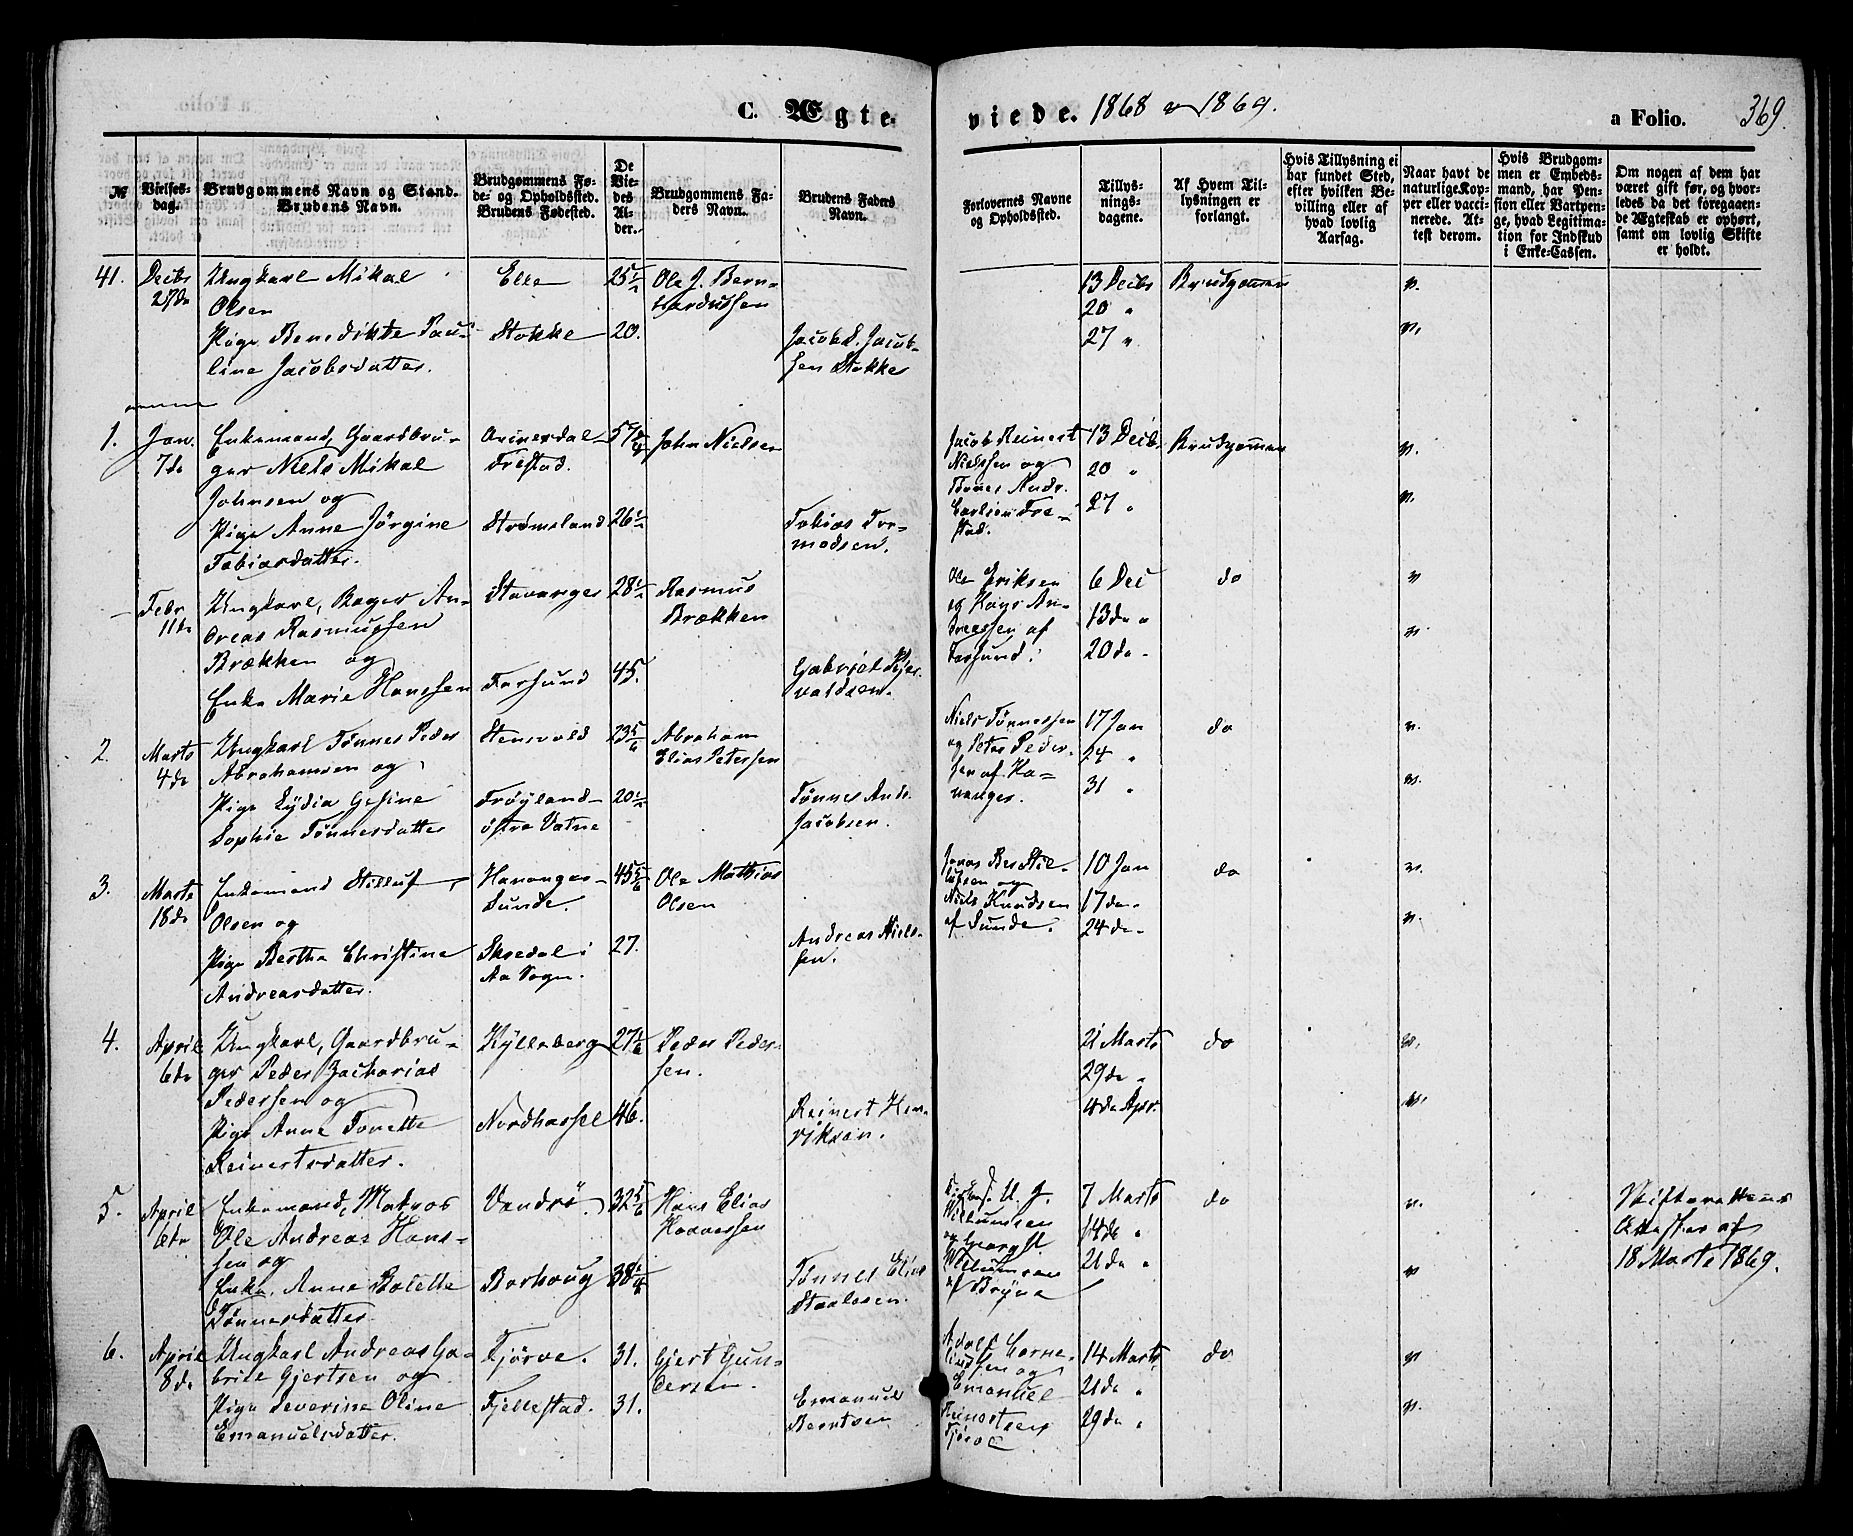 C. Ægte
viede. 1868 & 1869.
a Folio. 369.
№
Vielses-
dag.
Brudgommens Navn og Stand.
Brudens Navn.
Brudgommens Fø-
de- og Opholdssted.
Brudens Fødested.
De
Vie-
des
Al-
der.
Brudgommens Fa-
ders Navn.
Brudens Faders
Navn.
Forlovernes Navne
og Opholdssted.
Tillys-
nings-
dagene.
Af Hvem Til-
lysningen er
forlangt.
Hvis Tillysning ei
har fundet Sted,
efter hvilken Be-
villing eller af
hvad lovlig
Aarsag.
Naar havt de
naturlige Kop-
per eller vacci-
nerede. At-
test derom.
Hvis Brudgom-
men er Embeds-
mand, har Pen-
sion eller Vartpen-
ge, hvad Legitima-
tion for Indskud
i Enke-Cassen.
Om nogen af dem har
været gift før, og hvor-
ledes da det foregaaen-
de Ægteskab er ophørt,
samt om lovlig Skifte
er holdt.
41.
Decbr
27de
Ungkarl Mikal
Olsen
Pige Benedikte Pau-
line Jacobsdatter.
Elle
Stokke
25 1/2
20.
Ole J. Bern-
hardussen
Jacob S. Jacob-
sen Stokke
13 Decbr
20 "
27 "
Brudgommen
1.
Jan.
7de
Enkemand, Gaardbru-
ger Niels Mikal
Johnsen og
Pige Anne Jörgine
Tobiasdatter.
Orinerdal
Frestad.
Strömsland
57
26 1/2
John Nielsen
Tobias Tor-
modsen.
Jacob Reinert
Nielssen og
Tönes Andr.
Carlsen Fre-
stad.
13 Decbr
20 "
27 "
Brudgommen
Febr
11te
Ungkarl, Bager An-
dreas Rasmussen
Brækken og
Enke Marie Hanssen
Stavanger
Farsund
28 1/2
45.
Rasmus
Brækken
Gabriel
valdsen.
Ole Eriksen
og Hans An-
dreassen af
Farsund.
6 Dec
13de "
20de "
do
2.
Marts
4de
Ungkarl Tönnes Peder
Abrahamsen og
Pige Lydia Gesine
Sophie Tönnesdatter
Stensvold
Fröyland
östre Vatne
23 5/6
20 1/2
Abraham
Elias Petersen
Tönnes Andr.
Jacobsen.
Niels Tönnessen
og Peter Peder-
sen af Ha-
vanger.
17 Jan
24 "
31 "
do
3.
Marts
18de
Enkemand Stilluf
Olsen og
Pige Bertha Christine
Andreasdatter.
Havanger
Sunde.
Skeedal i
Aa Sogn.
45 5/6
27.
Ole Mathias
Olsen
Andreas Niels-
sen.
Jonas Ber. Stil-
lufsen og
Niels Knudsen
af Sunde.
10 Jan
17de "
24de "
do
4.
April
6te
Ungkarl, Gaardbru-
ger Peder Zacharias
Pedersen og
Pige Anne Tonette
Reinertsdatter.
Kjelleberg
Nordhassel
27 1/6
46.
Peder Peder-
sen.
Reinert Hen-
riksen.
21 Marts
29de "
4de Apr.
do
5.
April
6te
Enkemand, Matros
Ole Andreas Hans-
sen og
Enke Anne Bolette
Tönnesdatter
Vandsö.
Borhoug
32 5/6
38
Hans Elias
Haavessen
Tönnes Elias
Staalesen.
og Georg
af Bryne
7 Marts
14de "
21de "
do
Skifteretten
Attest af
18 Marts 1869.
6.
April
8de
Ungkarl Andreas Ga-
briel Gjertsen og
Pige Severine Oline
Emanuelsdatter.
Fjörve.
Fjellestad.
31.
31.
Gjert Gun-
dersen.
Emanuel
Berntsen
Adolf Corne-
liussen og
Emanuel
Reinertsen
Fjörve
14 Marts
21de "
29de "
do